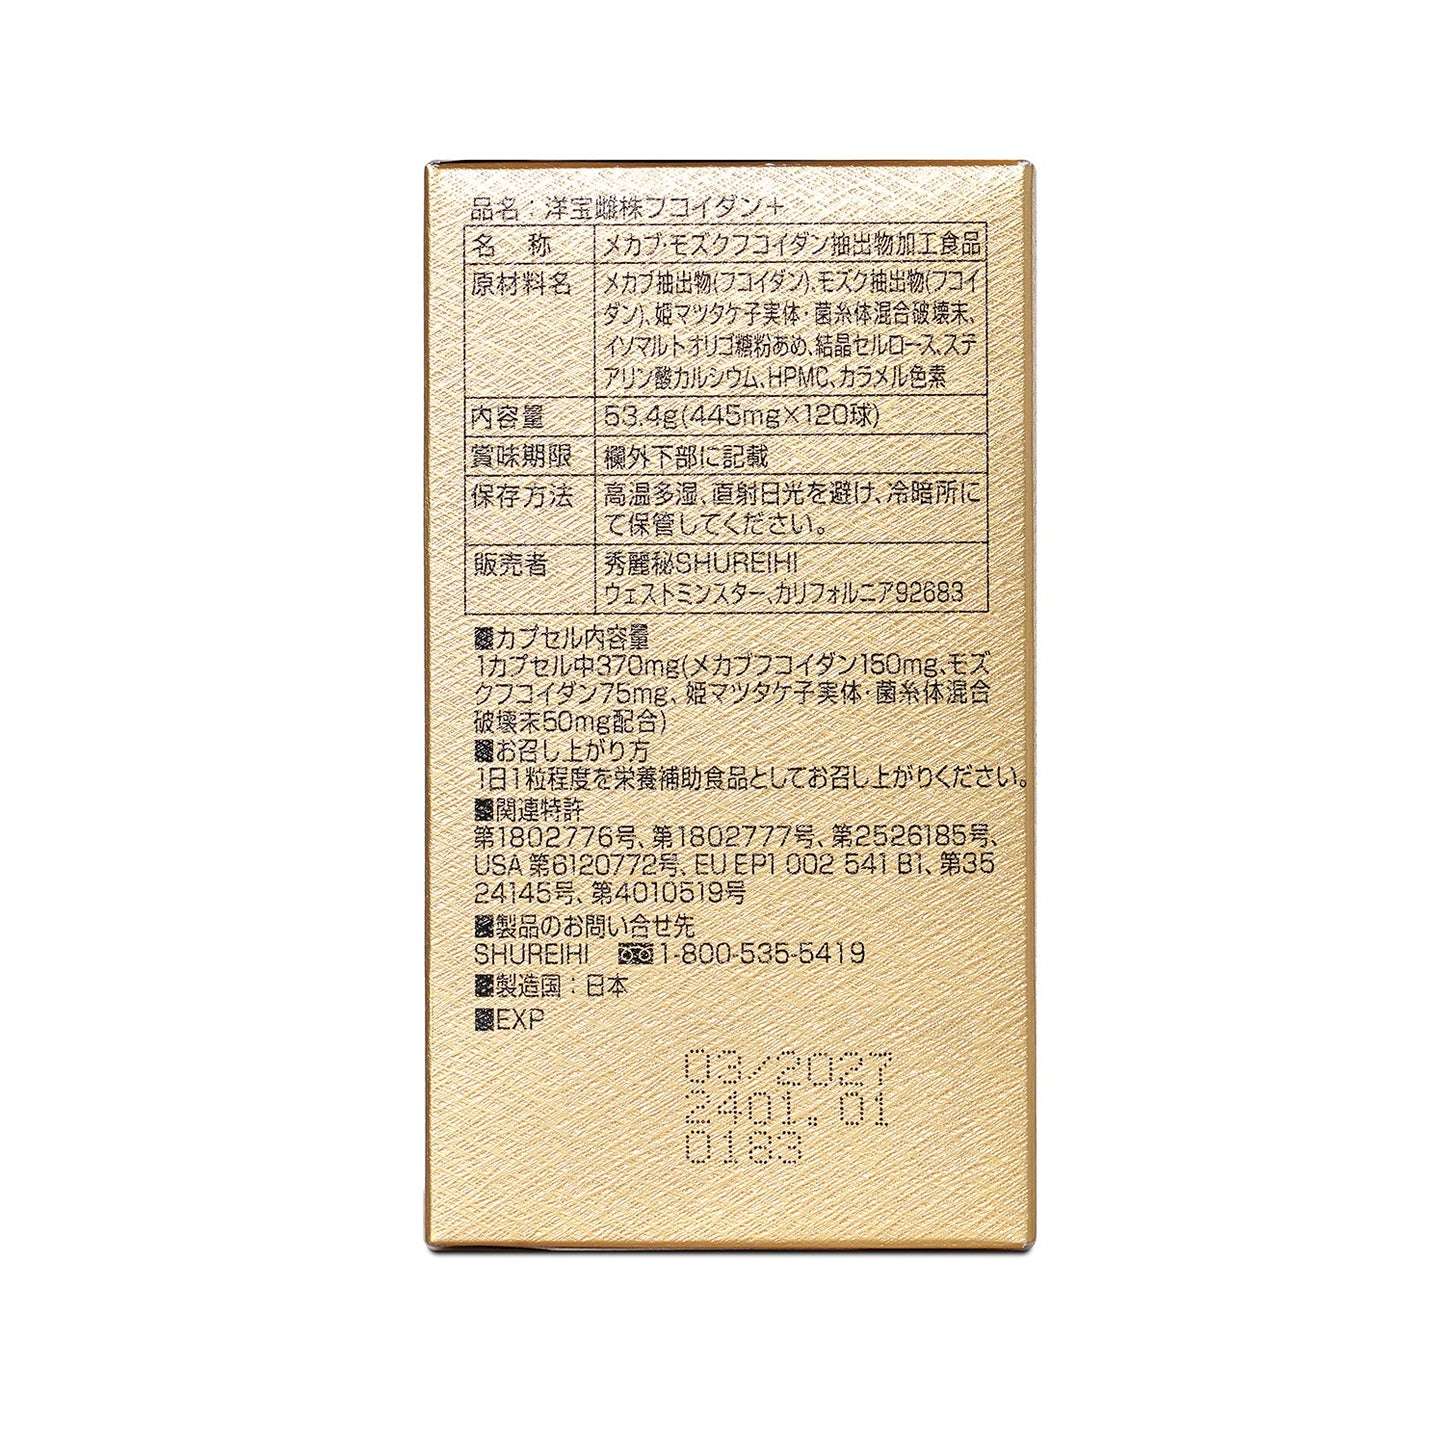 品名：洋宝雌株フコイダン＋
名　称　メカブ・モズクフコイダン抽出物加工食品
原材料名　メカブ抽出物(フコイダン)、モズク抽出物(フコイ
ダン)、姫マツタケ子実体・菌糸体混合破壊末、
イソマルトオリゴ糖粉あめ、結晶セルロース、ステ
アリン酸カルシウム、HPMC、カラメル色素
内容量　53.4g(445mg×120球)
賞味期限　欄外下部に記載
保存方法　高温多湿、直射日光を避け、冷暗所に
て保管してください。
販売者　秀麗秘SHUREIHI
ウェストミンスター、カリフォルニア92683
■カプセル内容量
1カプセル中370mg(メカブフコイダン150mg、モズ
クフコイダン75mg、姫マツタケ子実体・菌糸体混合
破壊末50mg配合)
■お召し上がり方
1日1粒程度を栄養補助食品としてお召し上がりください。
■関連特許
第1802776号、第1802777号、第2526185号、
USA 第6120772号、EU EP1 002 541 B1、第35
24145号、第4010519号
■製品のお問い合せ先
SHUREIHI　1-800-535-5419
■製造国：日本
■EXP
03/2027
2401.01
0183